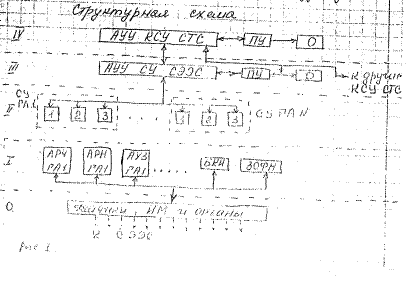 Структурная схема
IV АУУ КСУ СТС ПУ О
III АУУ СУ СЭЭС ПУ О
к другим КСУ СТС
СУ ГА1
II 1 2 3 . . . . 1 2 3 СУ ГА N
I АРЧ ГА1 АРН ГА1 АУЗ ГА1 ..... ЗОФН
О Датчики ИМ и органы
К СЭЭС
рис 1